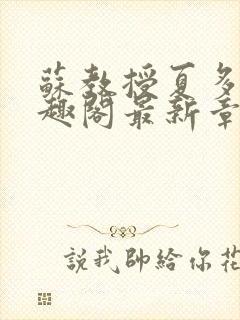 蘇教授夏多
趣閣最新章
說我帥給你花